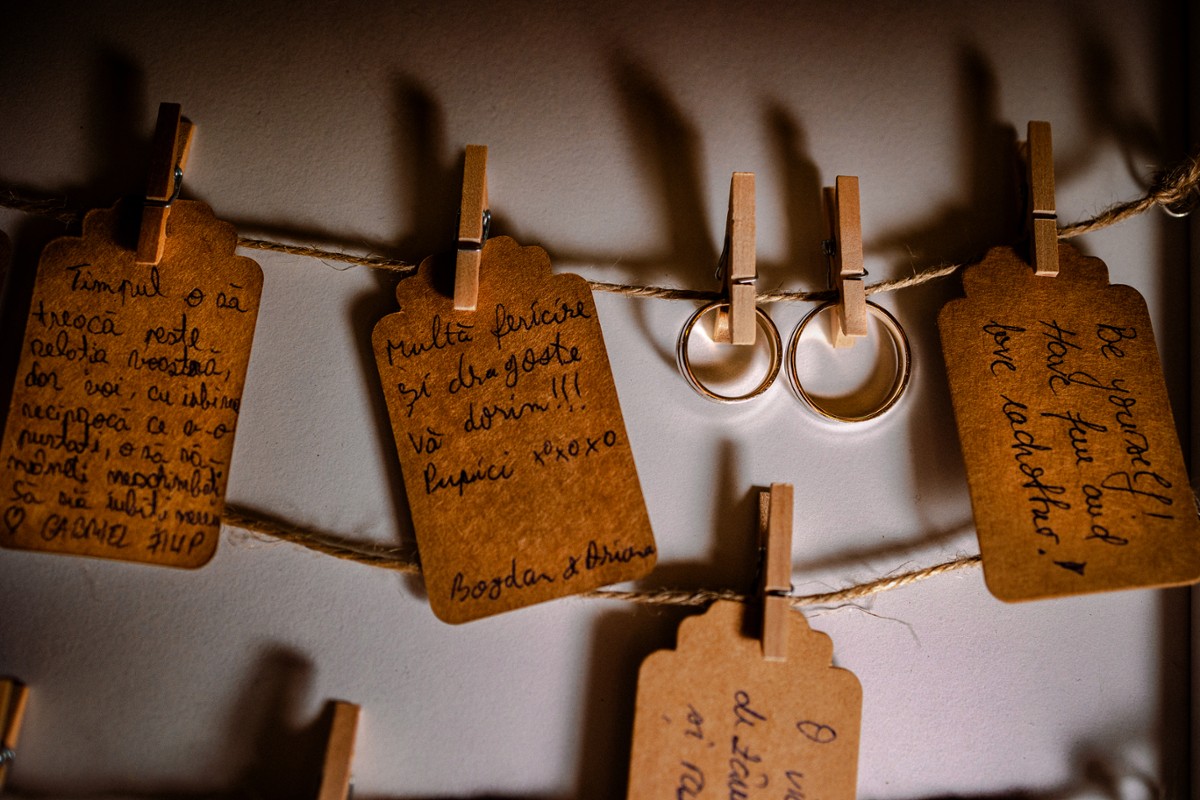 Timpul o să
treacă peste
relația voastră,
dar voi, cu iubirea
reciprocă ce v-o
purtați, o să ră-
mâneți neschimbați
Să vă iubiți mereu
♡ GABRIEL FILIP
Multă fericire
și dragoste
vă dorim!!!
Pupici xoxoxo
Bogdan & Ariana
Be yourself!
Have fun and
love eachother.
O
de
și